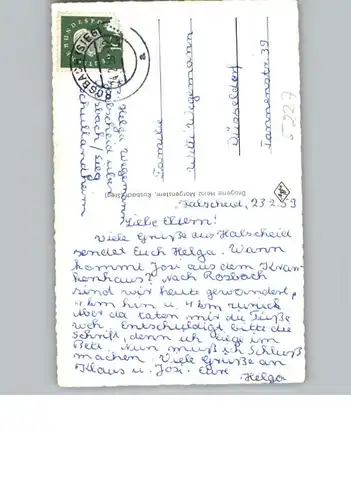 Halscheid, 23.2.59
Liebe Eltern!
Viele Grüße aus Halscheid
sendet Euch Helga. Wann
kommt Josi aus dem Kran-
kenhaus? Nach Rosbach
sind wir heute gewandert,
4 km hin u. 4 km zurück
Aber da taten mir die Füße
weh. Entschuldigt bitte die
Schrift, denn ich liege im
Bett. Nun muß ich Schluß
machen. Viele Grüße an
Klaus u. Josi. Eure
Helga
Familie
Willi Wegemann
Düsseldorf
Tannenstr. 39
Helga Wegemann
Halscheid über
Rosbach/Sieg
Schullandheim
Drogerie Heinz Morgenstern, Rosbach(Sieg)
ROSBACH (SIEG)
BUNDESPOST
10
5227